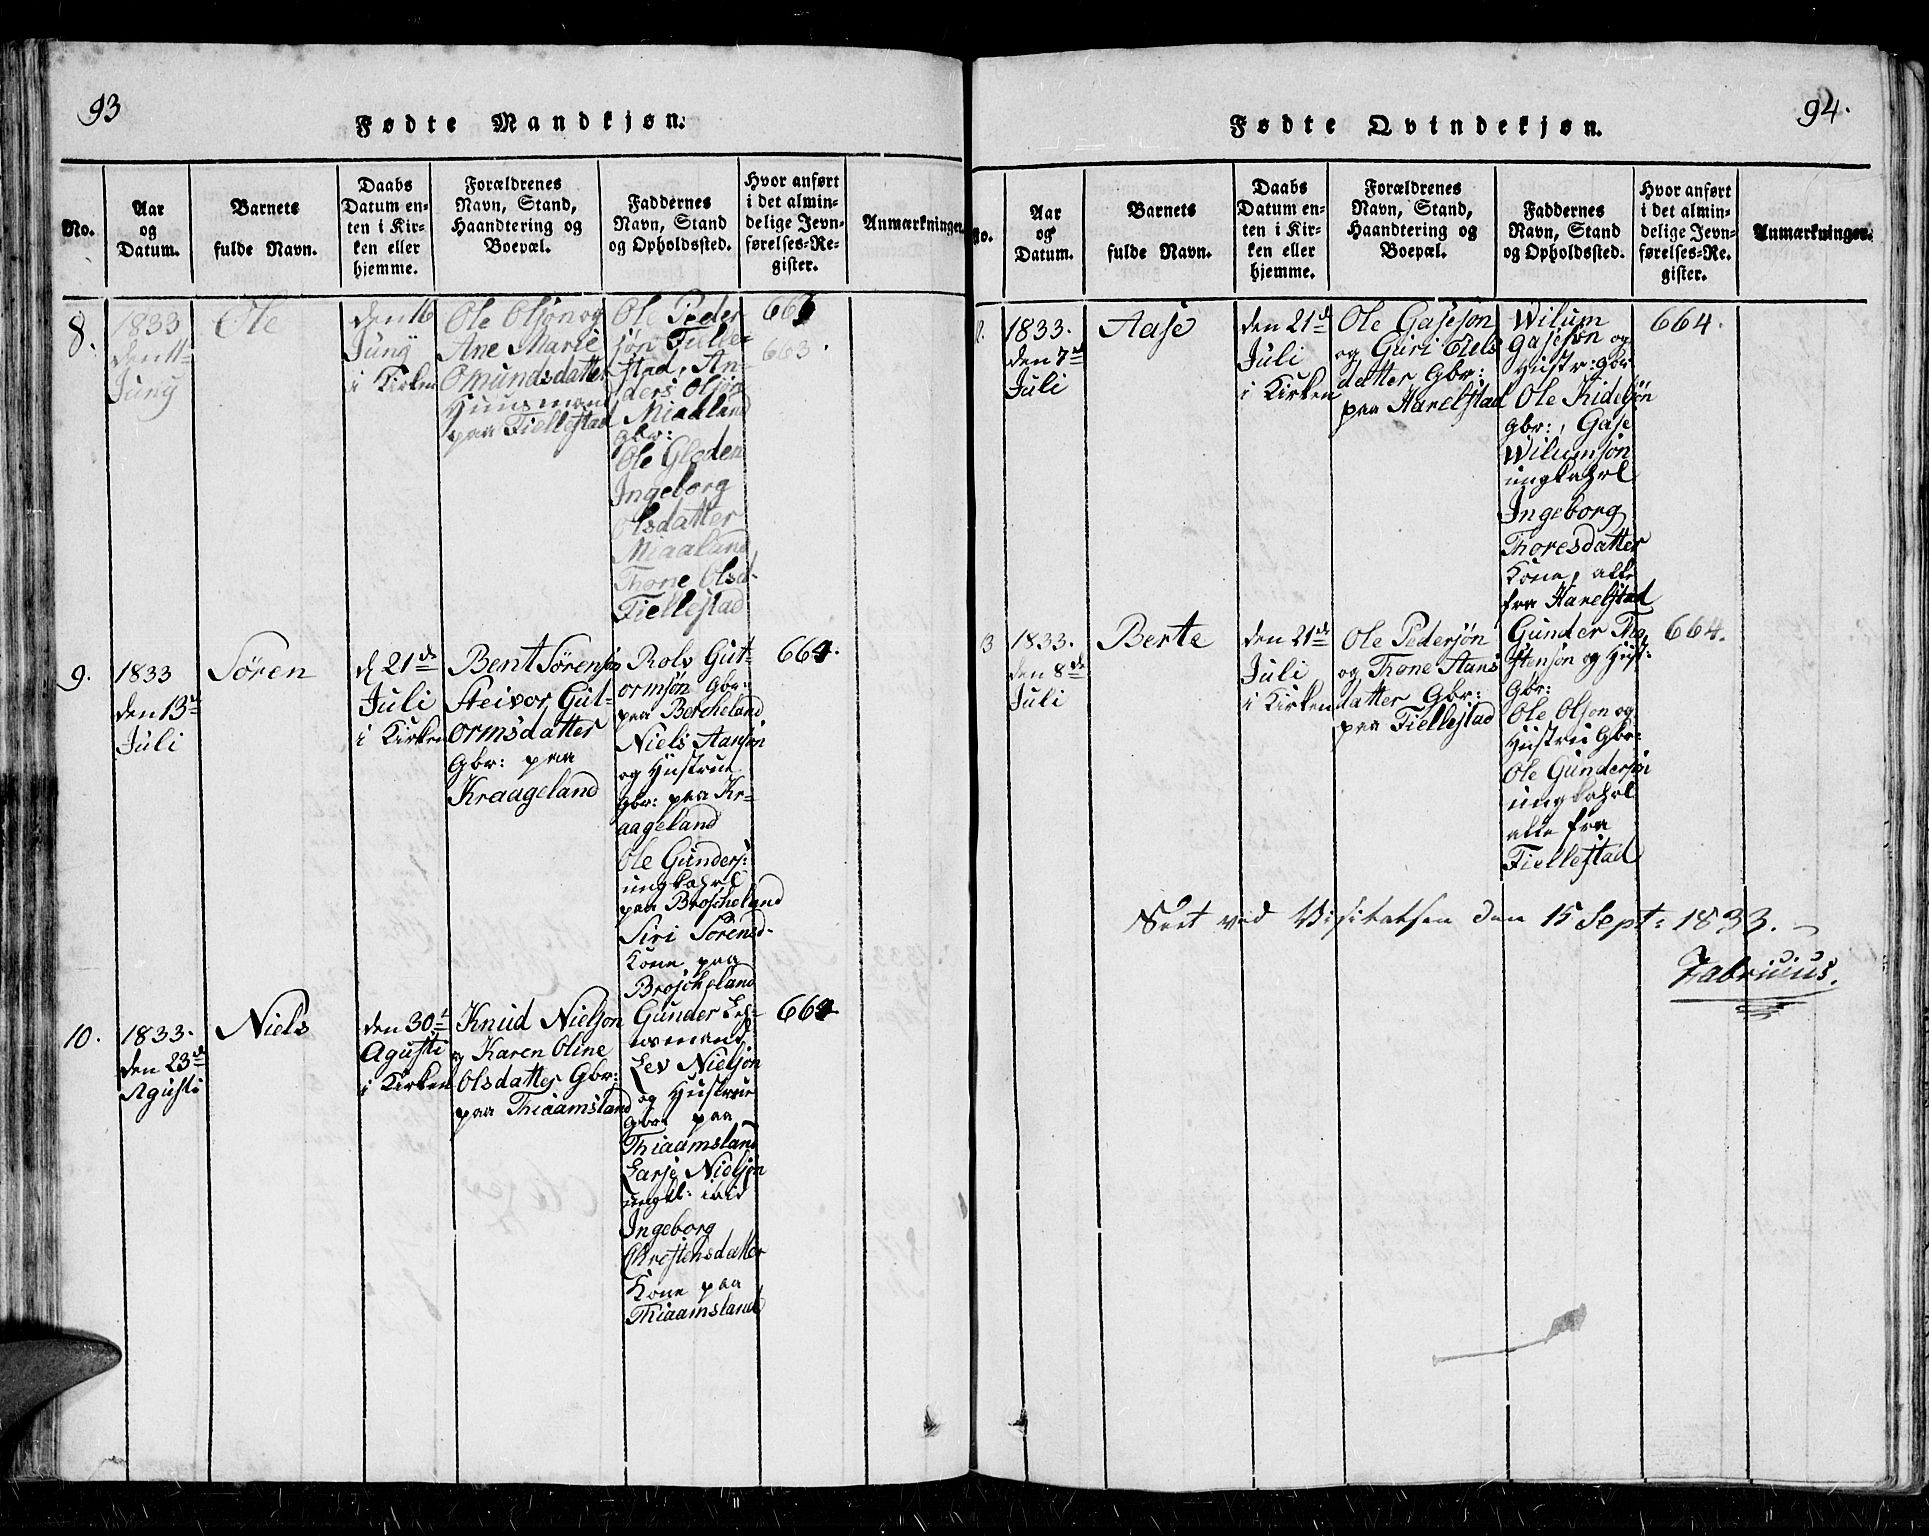 93
Fødte Mandkjøn.
No.
Aar
og
Datum.
Barnets
fulde Navn.
Daabs
Datum en-
ten i Kir-
ken eller
hjemme.
Forældrenes
Navn, Stand,
Haandtering og
Boepæl.
Faddernes
Navn, Stand
og Opholdssted.
Hvor anført
i det almin-
delige Jevn-
førelses-Re-
gister.
Anmærkninger.
8.
1833
den 11
Juny
Ole
den 16
Juny
i Kirken
Ole Olsøn og
Ane Marie
Omundsdatter
Huusmand
paa Fiellestad
Ole Peder
søn Fielle-
stad, An-
ders Olsøn
Miaaland
gbr:
Ole Gloden
Ingeborg
Olsdatter
Miaaland
Thone Olsd.
Fiellestad
663.
9.
1833
den 13de
Juli
Søren
d 21de
Juli
i Kirken
Bent Sørensøn
Steivor Gut-
ormsdatter
Gbr: paa
Kraageland
Rolv Gut-
ormsøn Gbr:
paa Bercheland
Niels Aansøn
og Hustrue
gbr: paa Kr-
aageland
Ole Gunders:
ungkahrl
paa Broscheland
Siri Sørensd-
Kone paa
Broscheland
664.
10.
1833.
den 23de
Agusti
Niels
den 30te
Agusti
i Kirken
Knud Nielsøn
og Karen Oline
Olsdatter Gbr:
paa Thiaamsland
Gunder Leh-
nsmand
Lev Nielsøn
og Hustrue
gbr. paa
Thiaamsland
Larse Nielsøn
ungk: ibid
Ingeborg
Christensdatter
Kone paa
Thiaamsland
664
94.
Fødte Qvindekjøn.
No.
Aar
og
Datum.
Barnets
fulde Navn.
Daabs
Datum en-
ten i Kir-
ken eller
hjemme.
Forældrenes
Navn, Stand,
Haandtering og
Boepæl.
Faddernes
Navn, Stand
og Opholdssted.
Hvor anført
i det almin-
delige Jevn-
førelses-Re-
gister.
Anmærkninger.
12.
1833.
den 7de
Juli
Aase
den 21de
Juli
i Kirken
Ole Gasesøn
og Guri Eels
datter Gbr:
paa Harelstad
Wilum
Gasesøn og
Hustr: gbr
Ole Kidelsøn
gbr:, Gase
Wilumsøn
ungkahrl
Ingeborg
Thoresdatter
Kone, alle
fra Harelstad
664.
13
1833.
den 8de
Juli
Berte
den 21de
Juli
i Kirken
Ole Pedersøn
og Thone Aans
datter Gbr:
paa Fiellestad
Gunder Tho,
stensøn og Hust:
gbr:
Ole Olsøn og
Hustru Gbr:
Ole Gundersøn
ungkahrl
alle fra
Fiellestad
664.
Seet ved Visitatsen den 15 Sept: 1833.
Fabricius.